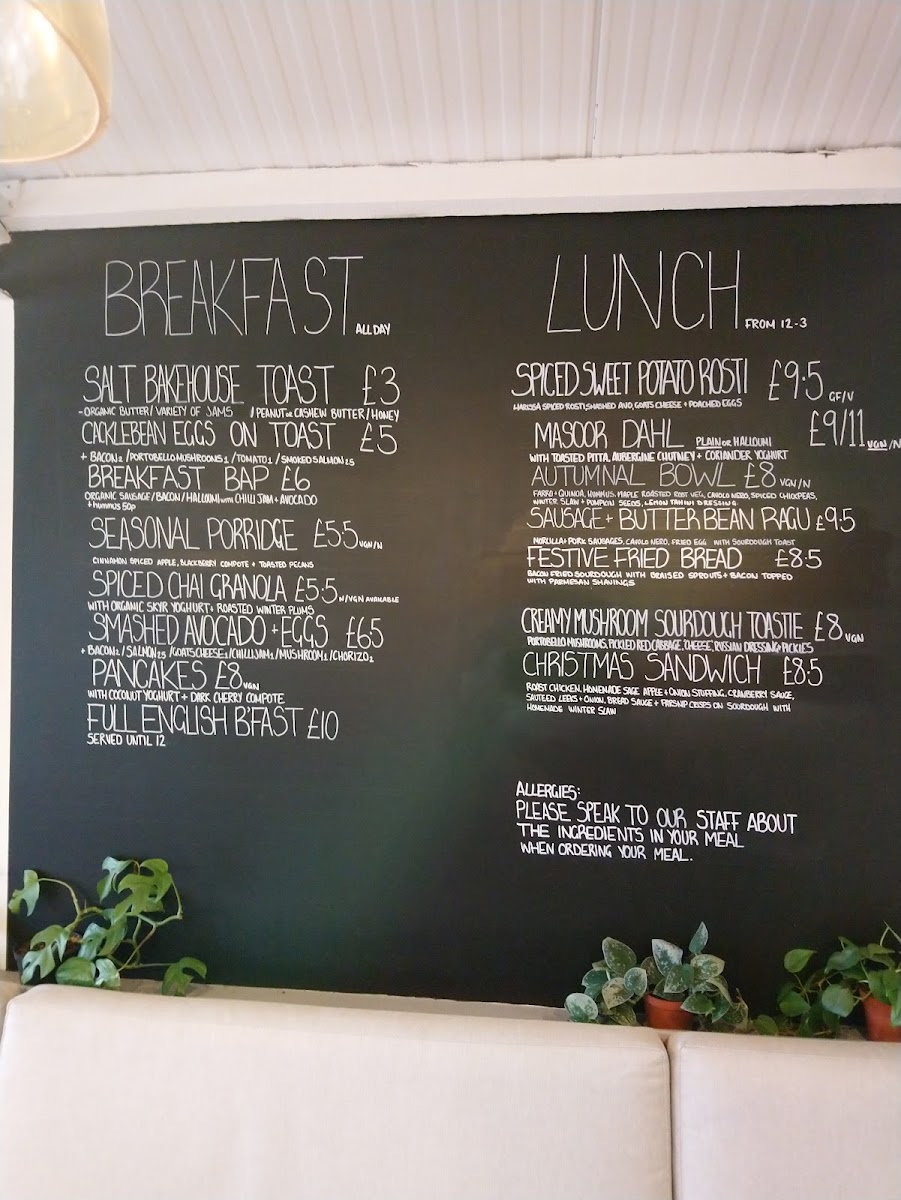 BREAKFAST ALL DAY
SALT BAKEHOUSE TOAST £3
- ORGANIC BUTTER / VARIETY OF JAMS / PEANUT OR CASHEW BUTTER / HONEY
CACKLEBEAN EGGS ON TOAST £5
+ BACON 2 / PORTOBELLO MUSHROOMS 1 / TOMATO 1 / SMOKED SALMON 2.5
BREAKFAST BAP £6
ORGANIC SAUSAGE / BACON / HALLOUMI WITH CHILLI JAM + AVOCADO
+ HUMMUS 50P
SEASONAL PORRIDGE £5.5 VGN/N
CINNAMON SPICED APPLE, BLACKBERRY COMPOTE + TOASTED PECANS
SPICED CHAI GRANOLA £5.5 N/VGN AVAILABLE
WITH ORGANIC SKYR YOGHURT + ROASTED WINTER PLUMS
SMASHED AVOCADO + EGGS £6.5
+ BACON 2 / SALMON 2.5 / GOATS CHEESE 1 / CHILLI JAM 1 / MUSHROOM 1 / CHORIZO 2
PANCAKES £8 VGN
WITH COCONUT YOGHURT + DARK CHERRY COMPOTE
FULL ENGLISH BFAST £10
SERVED UNTIL 12
LUNCH FROM 12-3
SPICED SWEET POTATO ROSTI £9.5 GF/V
HARISSA SPICED ROSTI, SMASHED AVO, GOATS CHEESE + POACHED EGGS
MASOOR DAHL PLAIN OR HALLOUMI £9/11 VGN/N
WITH TOASTED PITTA, AUBERGINE CHUTNEY + CORIANDER YOGHURT
AUTUMNAL BOWL £8 VGN/N
FARRO + QUINOA, HUMMUS, MAPLE ROASTED ROOT VEG, CAVOLO NERO, SPICED CHICKPEAS,
WINTER SLAW + PUMPKIN SEEDS, LEMON TAHINI DRESSING
SAUSAGE + BUTTER BEAN RAGU £9.5
MORCILLA + PORK SAUSAGES, CAVOLO NERO, FRIED EGG WITH SOURDOUGH TOAST
FESTIVE FRIED BREAD £8.5
BACON FRIED SOURDOUGH WITH BRAISED SPROUTS + BACON TOPPED
WITH PARMESAN SHAVINGS
CREAMY MUSHROOM SOURDOUGH TOASTIE £8 VGN
PORTOBELLO MUSHROOMS, PICKLED RED CABBAGE, CHEESE, RUSSIAN DRESSING + PICKLES
CHRISTMAS SANDWICH £8.5
ROAST CHICKEN, HOMEMADE SAGE APPLE + ONION STUFFING, CRANBERRY SAUCE,
SAUTEED LEEKS + ONION, BREAD SAUCE + PARSNIP CRISPS ON SOURDOUGH WITH
HOMEMADE WINTER SLAW
ALLERGIES:
PLEASE SPEAK TO OUR STAFF ABOUT
THE INGREDIENTS IN YOUR MEAL
WHEN ORDERING YOUR MEAL.